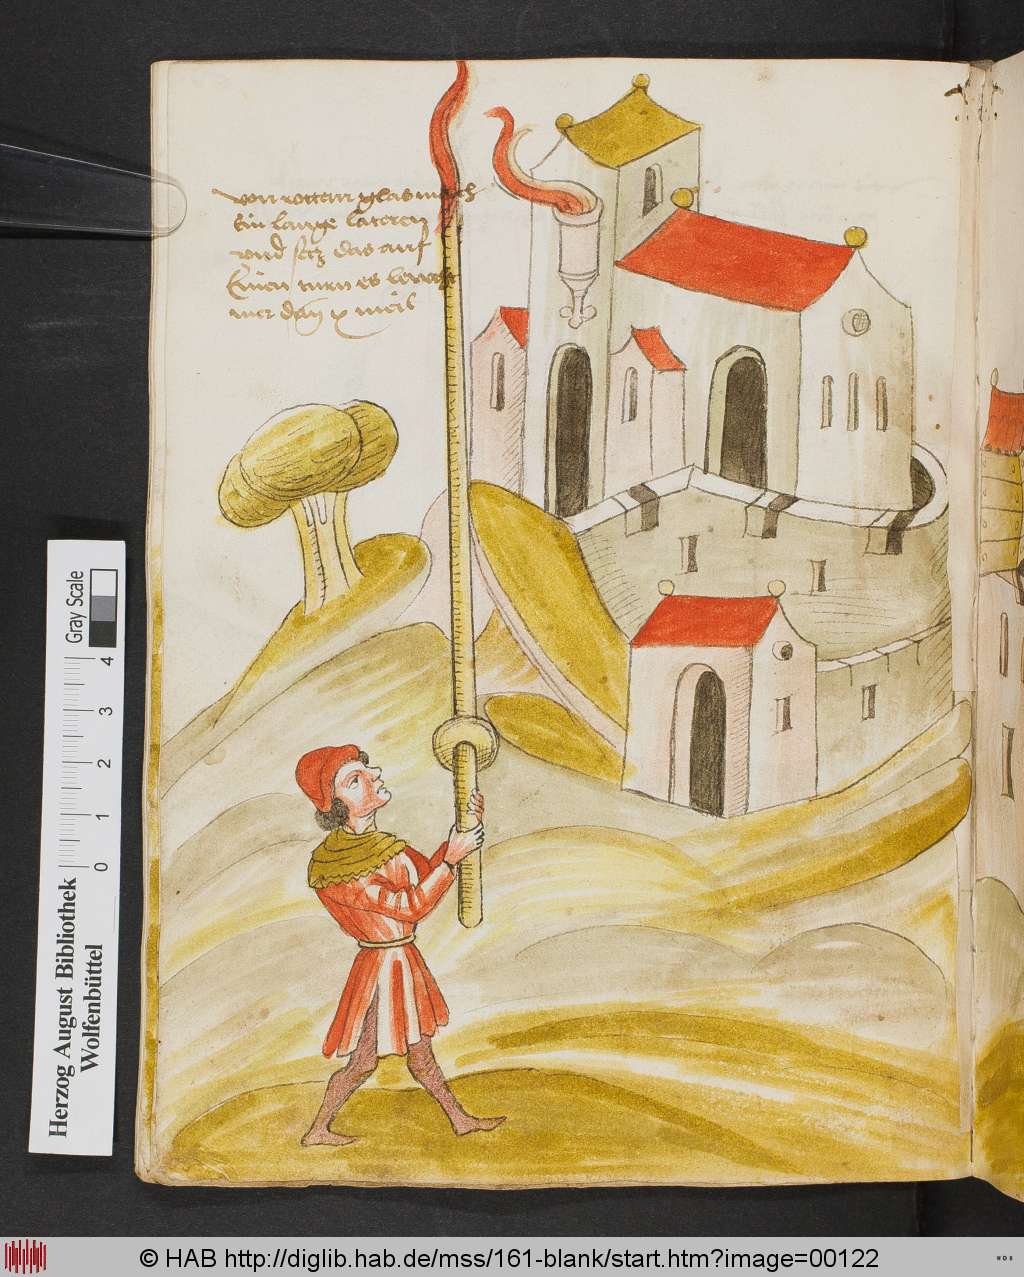 von rottem glas mach
Ein lange lateren
vnd setz das auf
Einen turn es
mer dan x meil
Herzog August Bibliothek
Wolfenbüttel
0 1 2 3 4
Gray Scale
© HAB http://diglib.hab.de/mss/161-blank/start.htm?image=00122